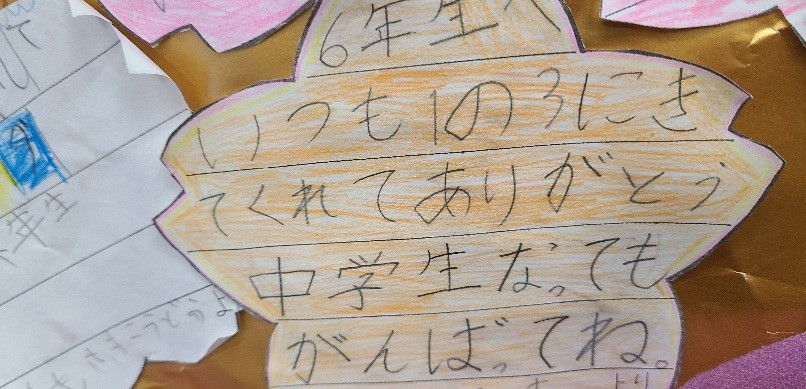 6年生へ
いつも1の3にき
てくれてありがとう
中学生なっても
がんばってね。
年生